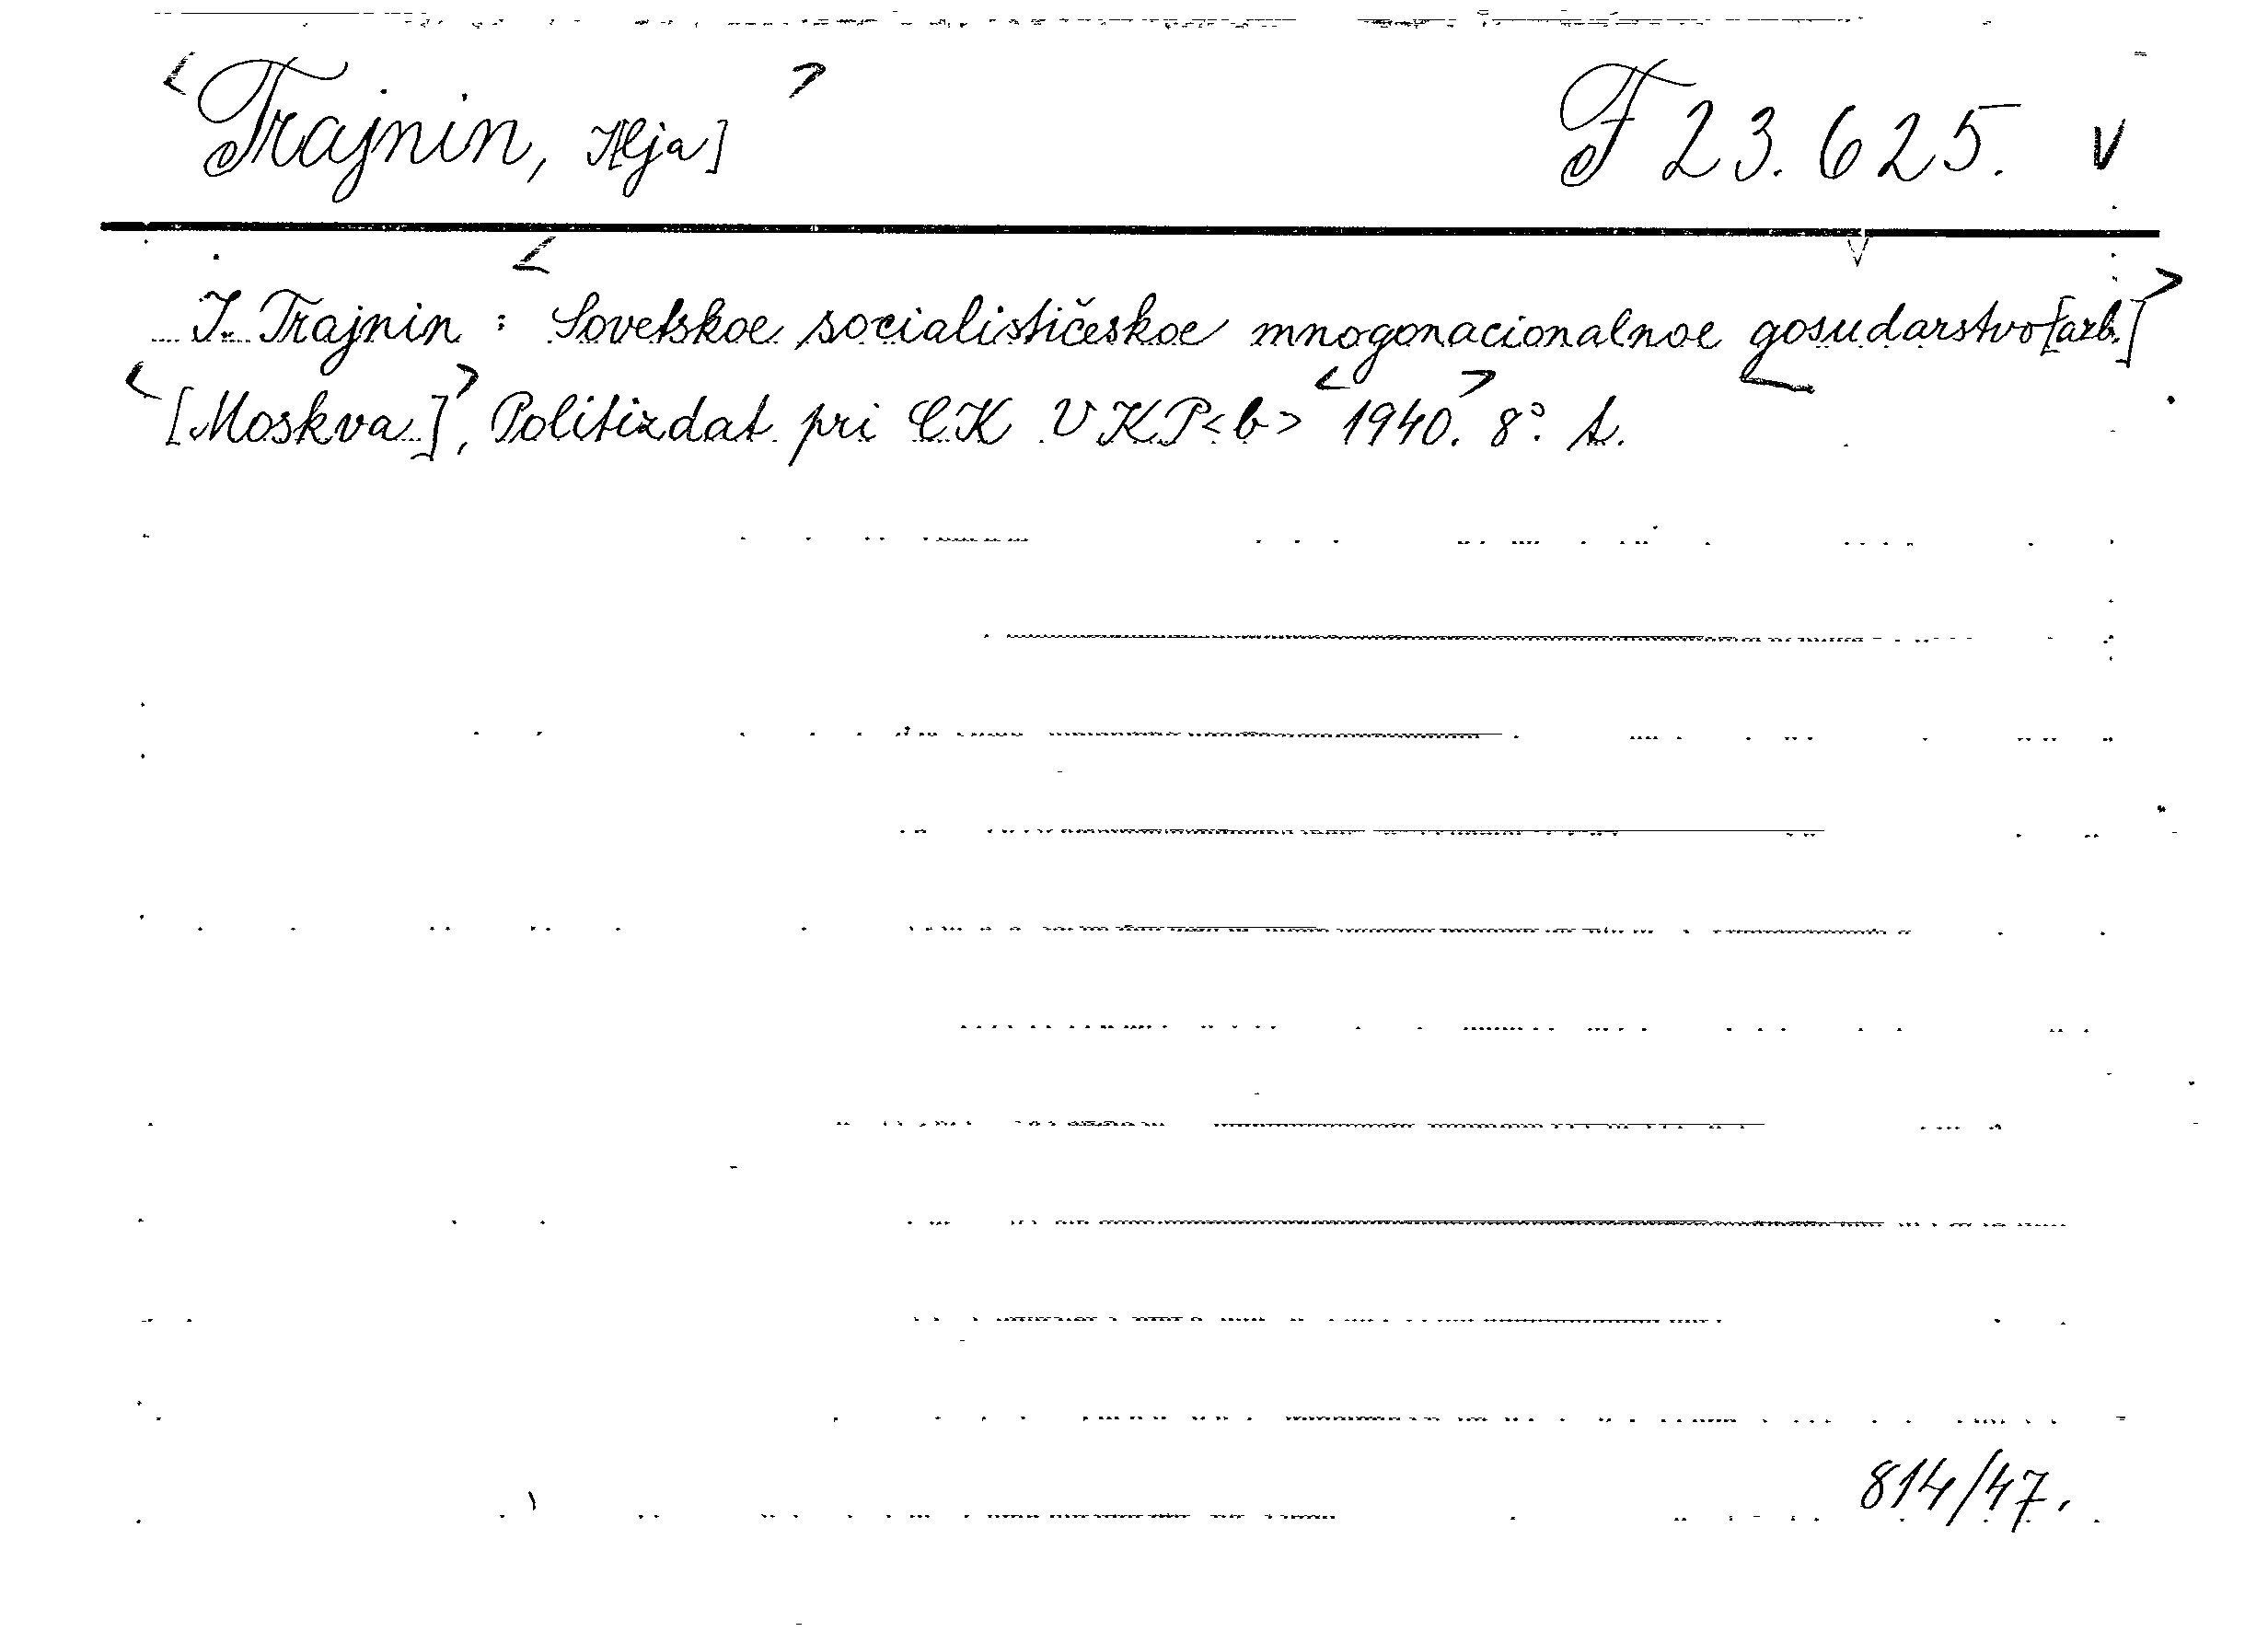 <Trajnin, I[lja]> F 23.625. v
I. Trajnin : <Sovetskoe socialističeskoe mnogonacionalnoe gosudarstvo [azb.]>
<[Moskva]>, Politizdat pri CK VKP<b> <1940.> 8° A.
814/47.